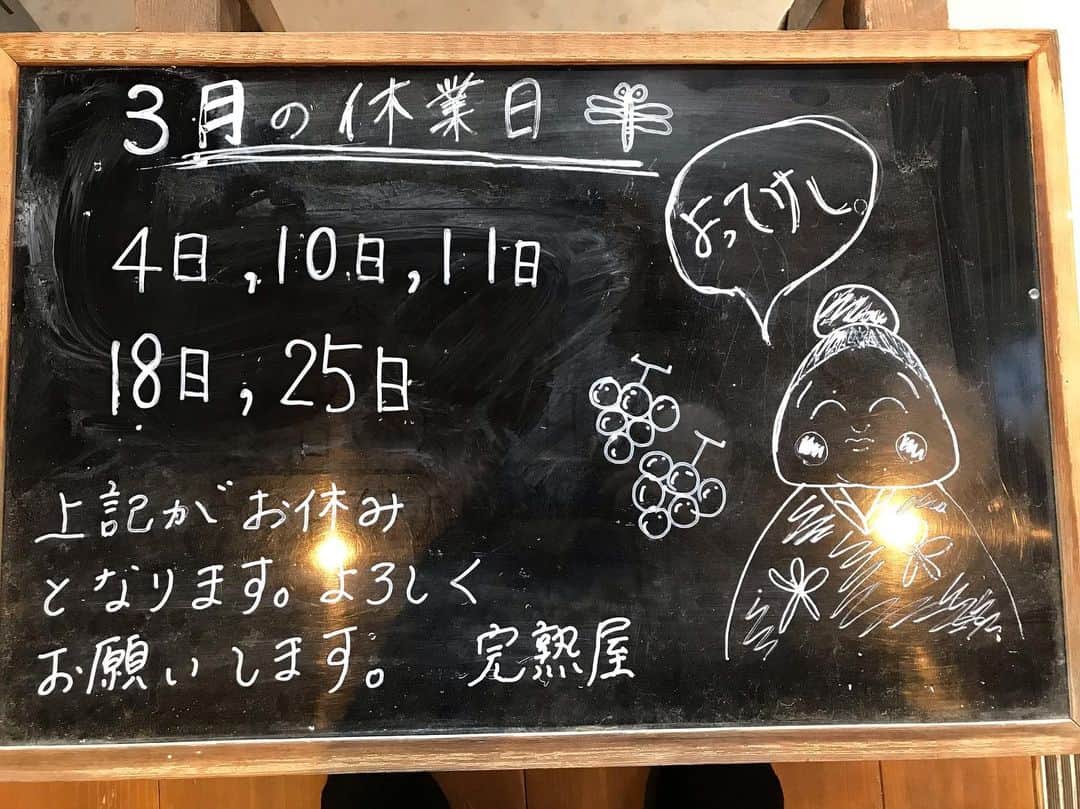 3月の休業日
4日,10日,11日
18日,25日
よってけし。
上記がお休み
となります。よろしく
お願いします。 完熟屋